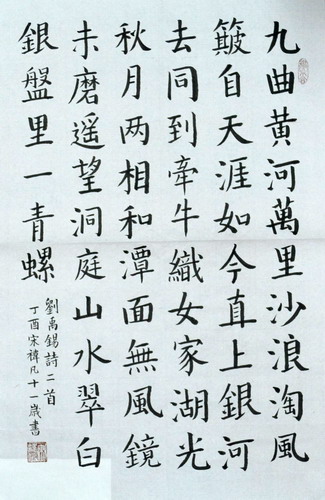 九曲黄河萬里沙浪淘風
簸自天涯如今直上銀河
去同到牽牛織女家湖光
秋月两相和潭面無風鏡
未磨遥望洞庭山水翠白
銀盤里一青螺
劉禹錫詩二首
丁酉宋禕凡十一歲書